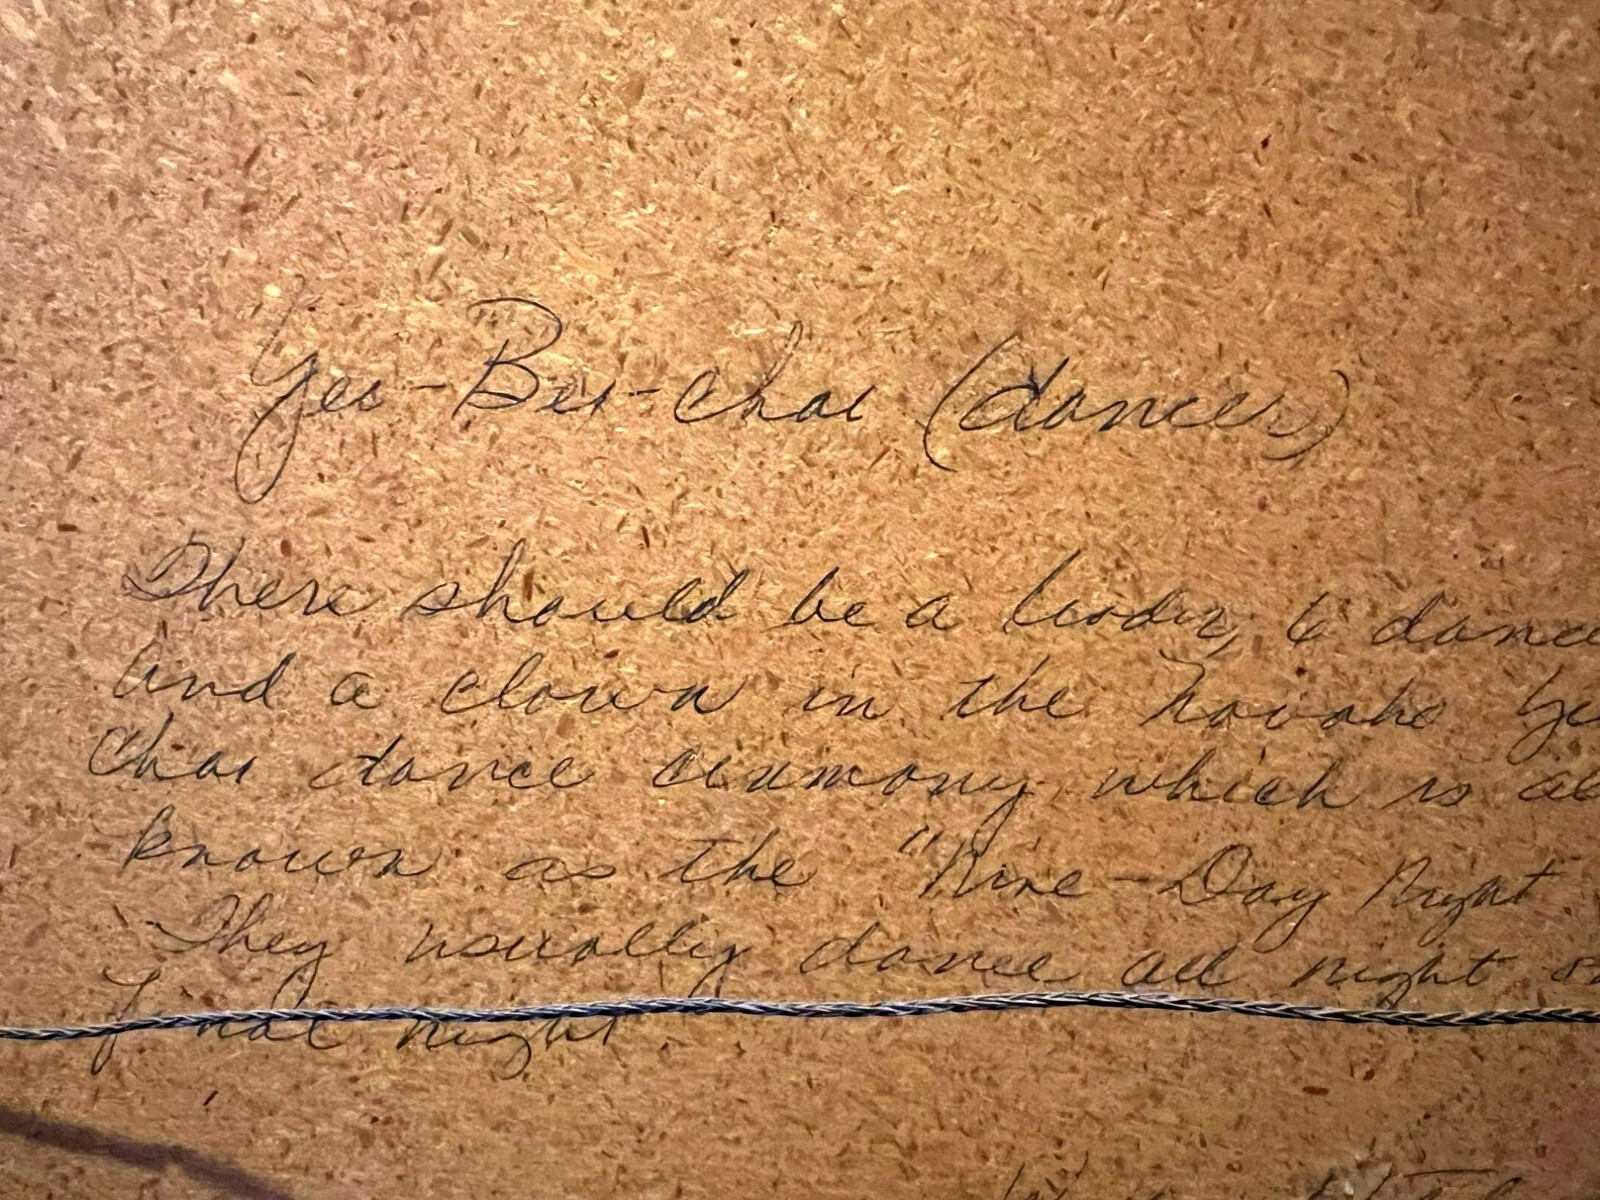 Yei-Bei-chai (dancers)
There should be a leader, 6 dance
and a clown in the Navaho Ye
Chai dance ceremony which is al
known as the "Nine-Day Night
They usually dance all night on
final night.